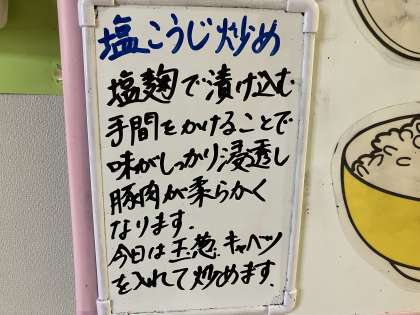 塩こうじ炒め
塩麹で漬け込む
手間をかけることで
味がしっかり浸透し
豚肉が柔らかく
なります.
今日は玉葱.キャベツ
を入れて炒めます.